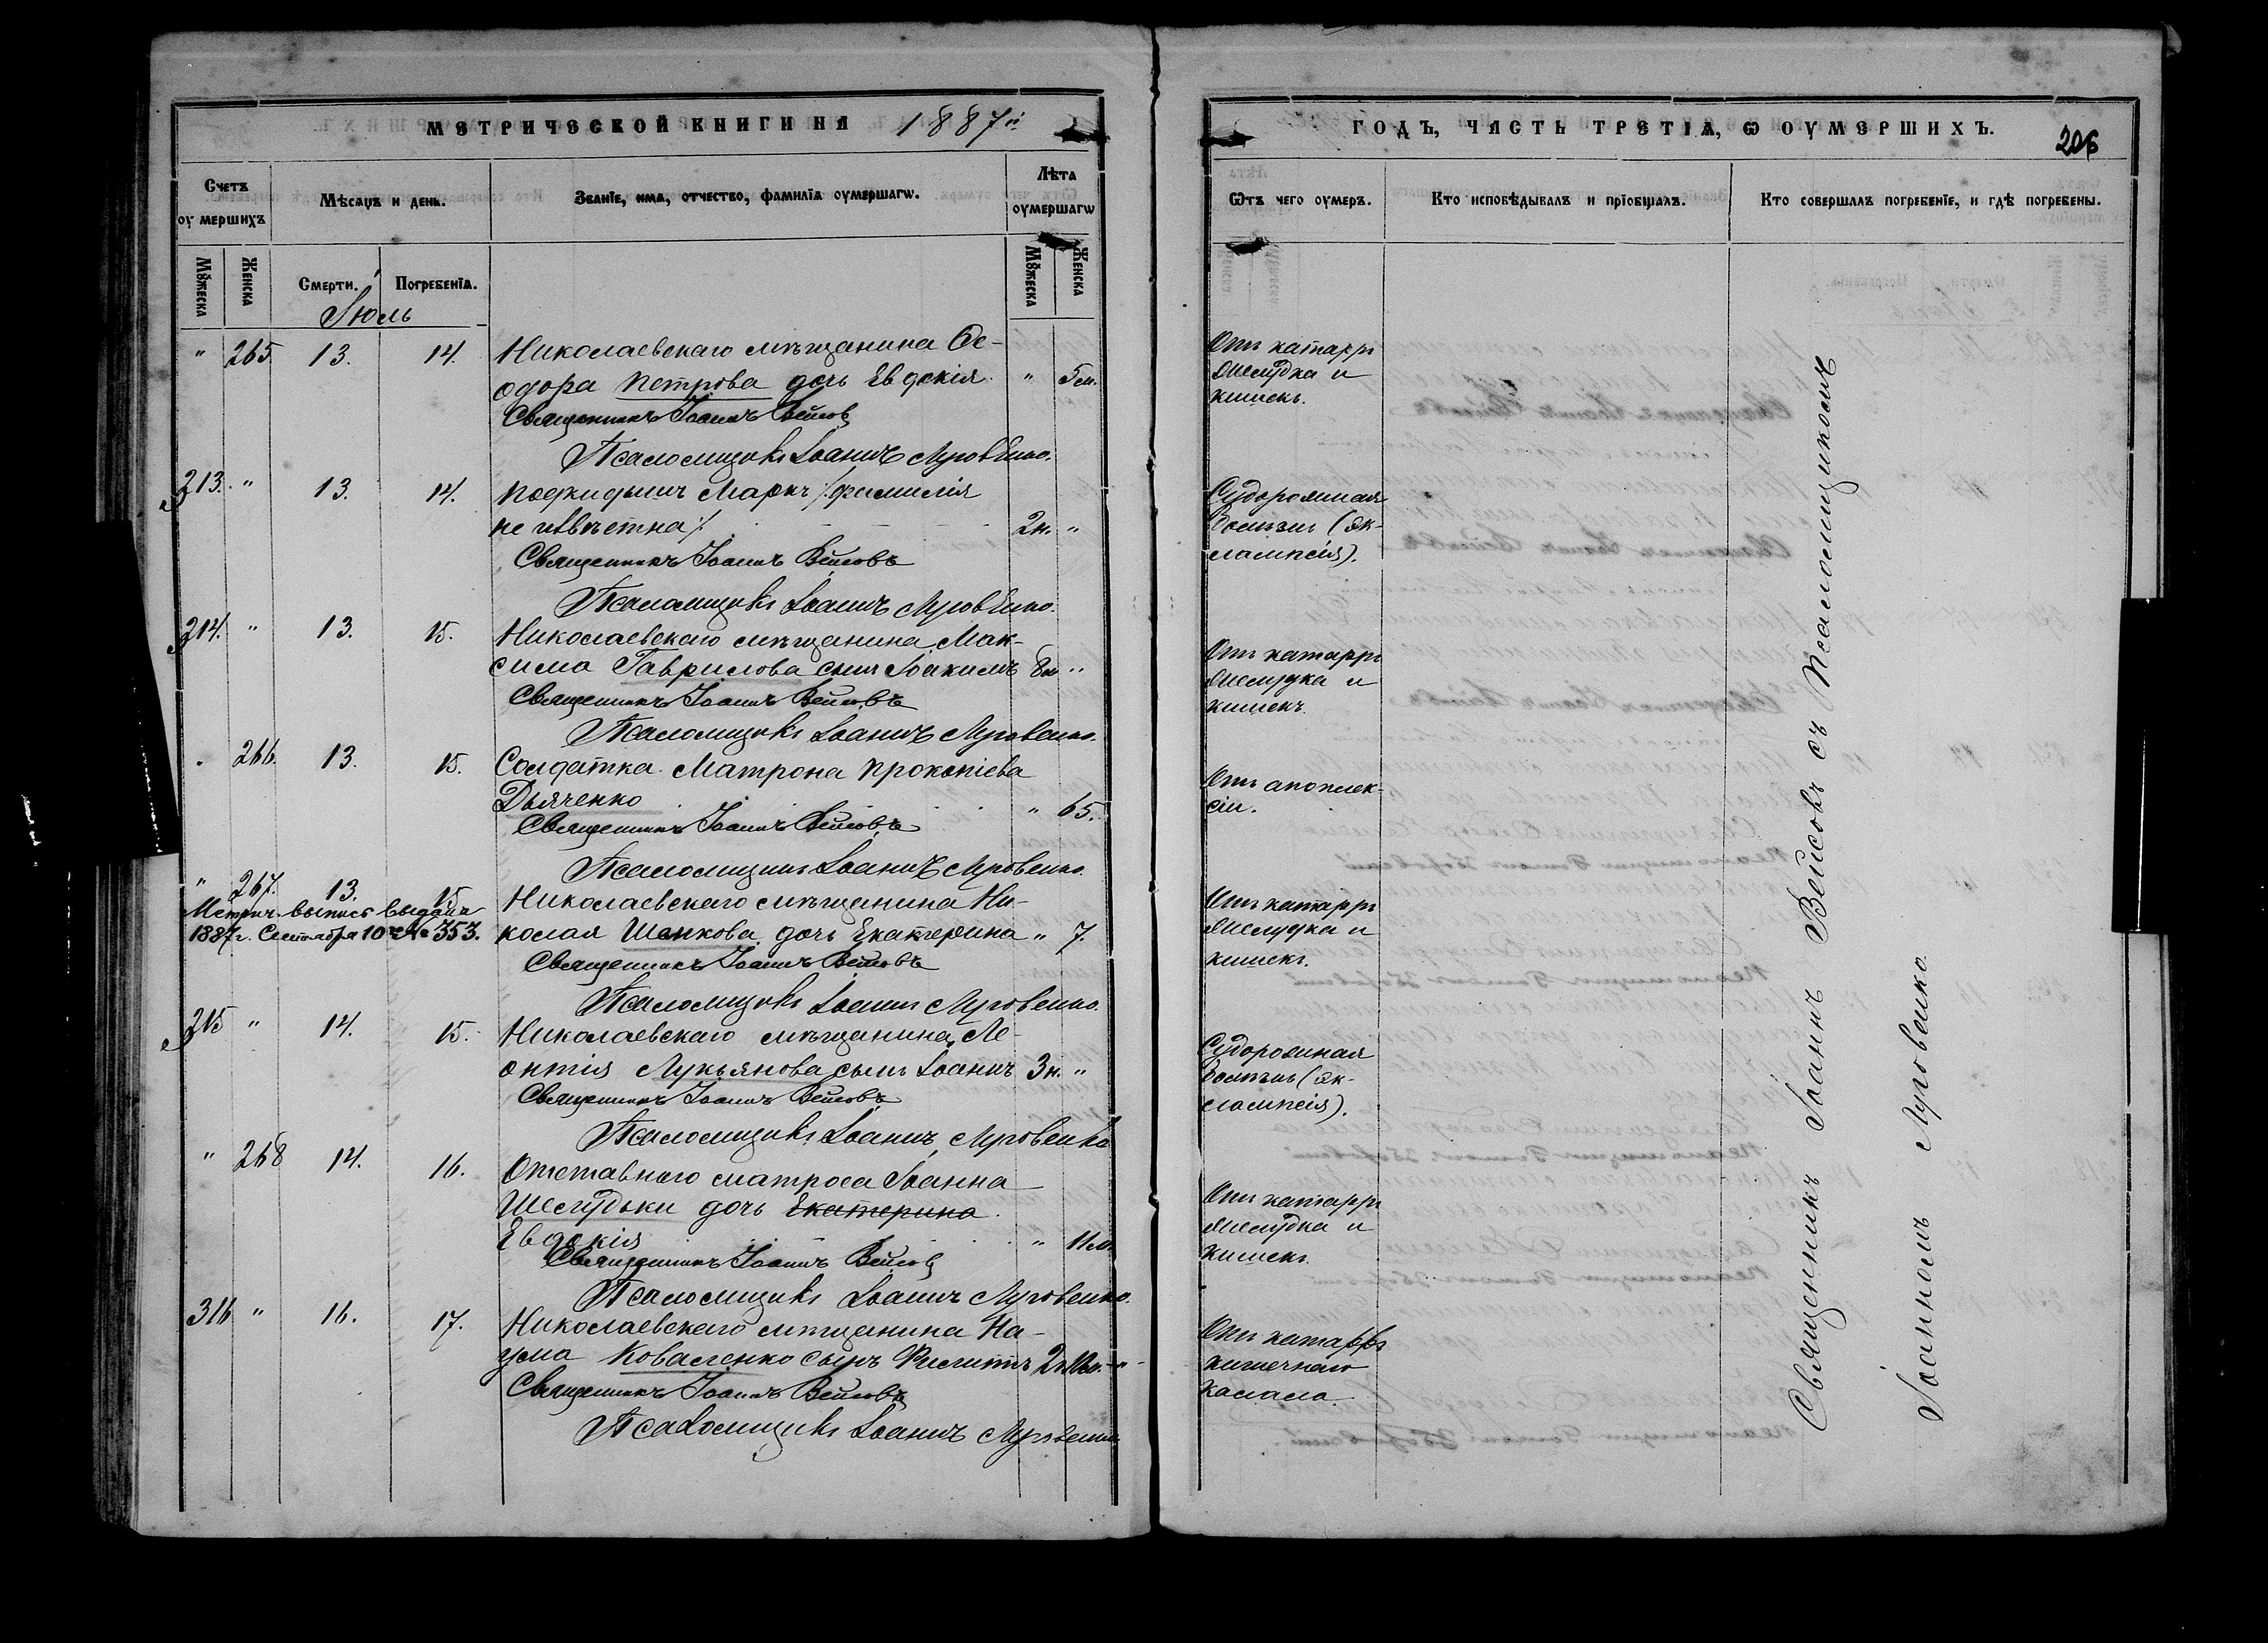 МЕТРИЧЕСКОЙ КНИГИ НА 1887й
ГОДЪ, ЧАСТЬ ТРЕТІѦ, Ѡ ОУМЕРШИХЪ.
206
Счетъ оумершихъ
Мѣсѧцъ и день.
Званїе, имѧ, отчество, фамилїѧ оумершагѡ.
Лѣта оумершагѡ
Ѿтъ чего оумеръ.
Кто исповѣдывалъ и прїобщалъ.
Кто совершалъ погребенїе, и гдѣ погребены.
Мꙋжеска
Женска
Смерти.
Погребенїѧ.
Мꙋжеска
Женска
Іюль
" 265. 13. 14. Николаевскаго мѣщанина Ѳе-
одора Петрова дочь Евдокія. " 5 м.
Отъ катарра
желудка и
кишекъ.
Священникъ Іоаннъ Вейсовъ
Псаломщикъ Іоаннъ Луговенко.
213. " 13. 14. Подкидышъ Маркъ /:фамилія
не извѣстна:/ 2 н. "
Судорожная
болѣзнь (эк-
лампсія).
Священникъ Іоаннъ Вейсовъ
Псаломщикъ Іоаннъ Луговенко.
214. " 13. 15. Николаевскаго мѣщанина Мак-
сима Гаврилова сынъ Іоакимъ 8 м "
Отъ катарра
желудка и
кишекъ
Священникъ Іоаннъ Вейсовъ
Псаломщикъ Іоаннъ Луговенко.
" 266. 13. 15. Солдатка Матрона Прокопіева
Дьяченко " 65.
Отъ апоплек-
сіи.
Священникъ Іоаннъ Вейсовъ
Псаломщикъ Іоаннъ Луговенко.
" 267. 13. 15 Николаевскаго мѣщанина Ни-
колая Шенкова дочь Екатерина " 7.
Метрич. выпись выдана
1887 г. Сентября 10 № 353.
Отъ катарра
желудка и
кишекъ.
Священникъ Іоаннъ Вейсовъ
Псаломщикъ Іоаннъ Луговенко.
215 " 14. 15. Николаевскаго мѣщанина Ле-
онтія Лукьянова сынъ Іоаннъ 3 н. "
Судорожная
болѣзнь (эк-
лампсія).
Священникъ Іоаннъ Вейсовъ
Псаломщикъ Іоаннъ Луговенко
" 268 14. 16. Отставного матроса Іоанна
Шелудьки дочь Екатерина
Евдокія " 11 м.
Отъ катарра
желудка и
кишекъ.
Священникъ Іоаннъ Вейсовъ
Псаломщикъ Іоаннъ Луговенко.
316 " 16. 17. Николаевскаго мѣщанина На-
ума Коваленко сынъ "
Отъ катарра
кишечнаго
канала.
Священникъ Іоаннъ Вейсовъ
Псаломщикъ Іоаннъ Луговенко
Священникъ Іоаннъ Вейсовъ съ Псаломщикомъ
Іоанномъ Луговенко.